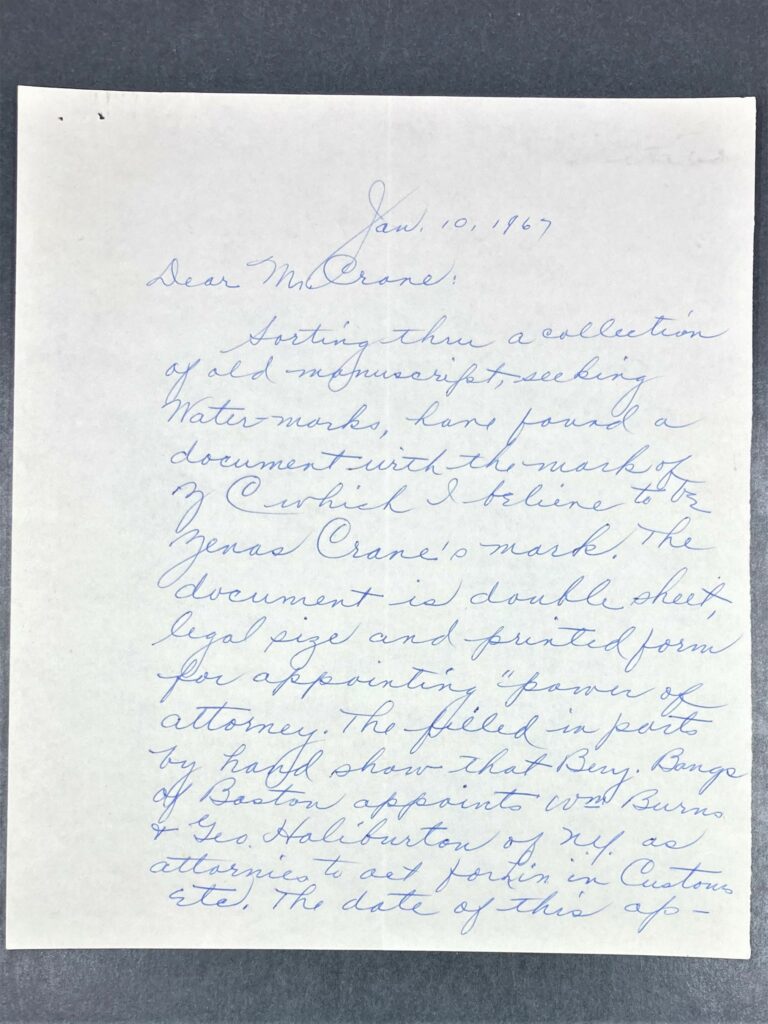 Jan. 10, 1967
Dear Mr. Crane:
Sorting thru a collection
of old manuscript, seeking
Water-marks, have found a
document with the mark of
Z C which I believe to be
Zenas Crane's mark. The
document is double sheet,
legal size and printed form
for appointing "power of
attorney. The filled in parts
by hand show that Benj. Bangs
of Boston appoints Wm Burns
& Geo. Haliburton of N.Y. as
attornies to act for him in Customs
Etc. The date of this ap-